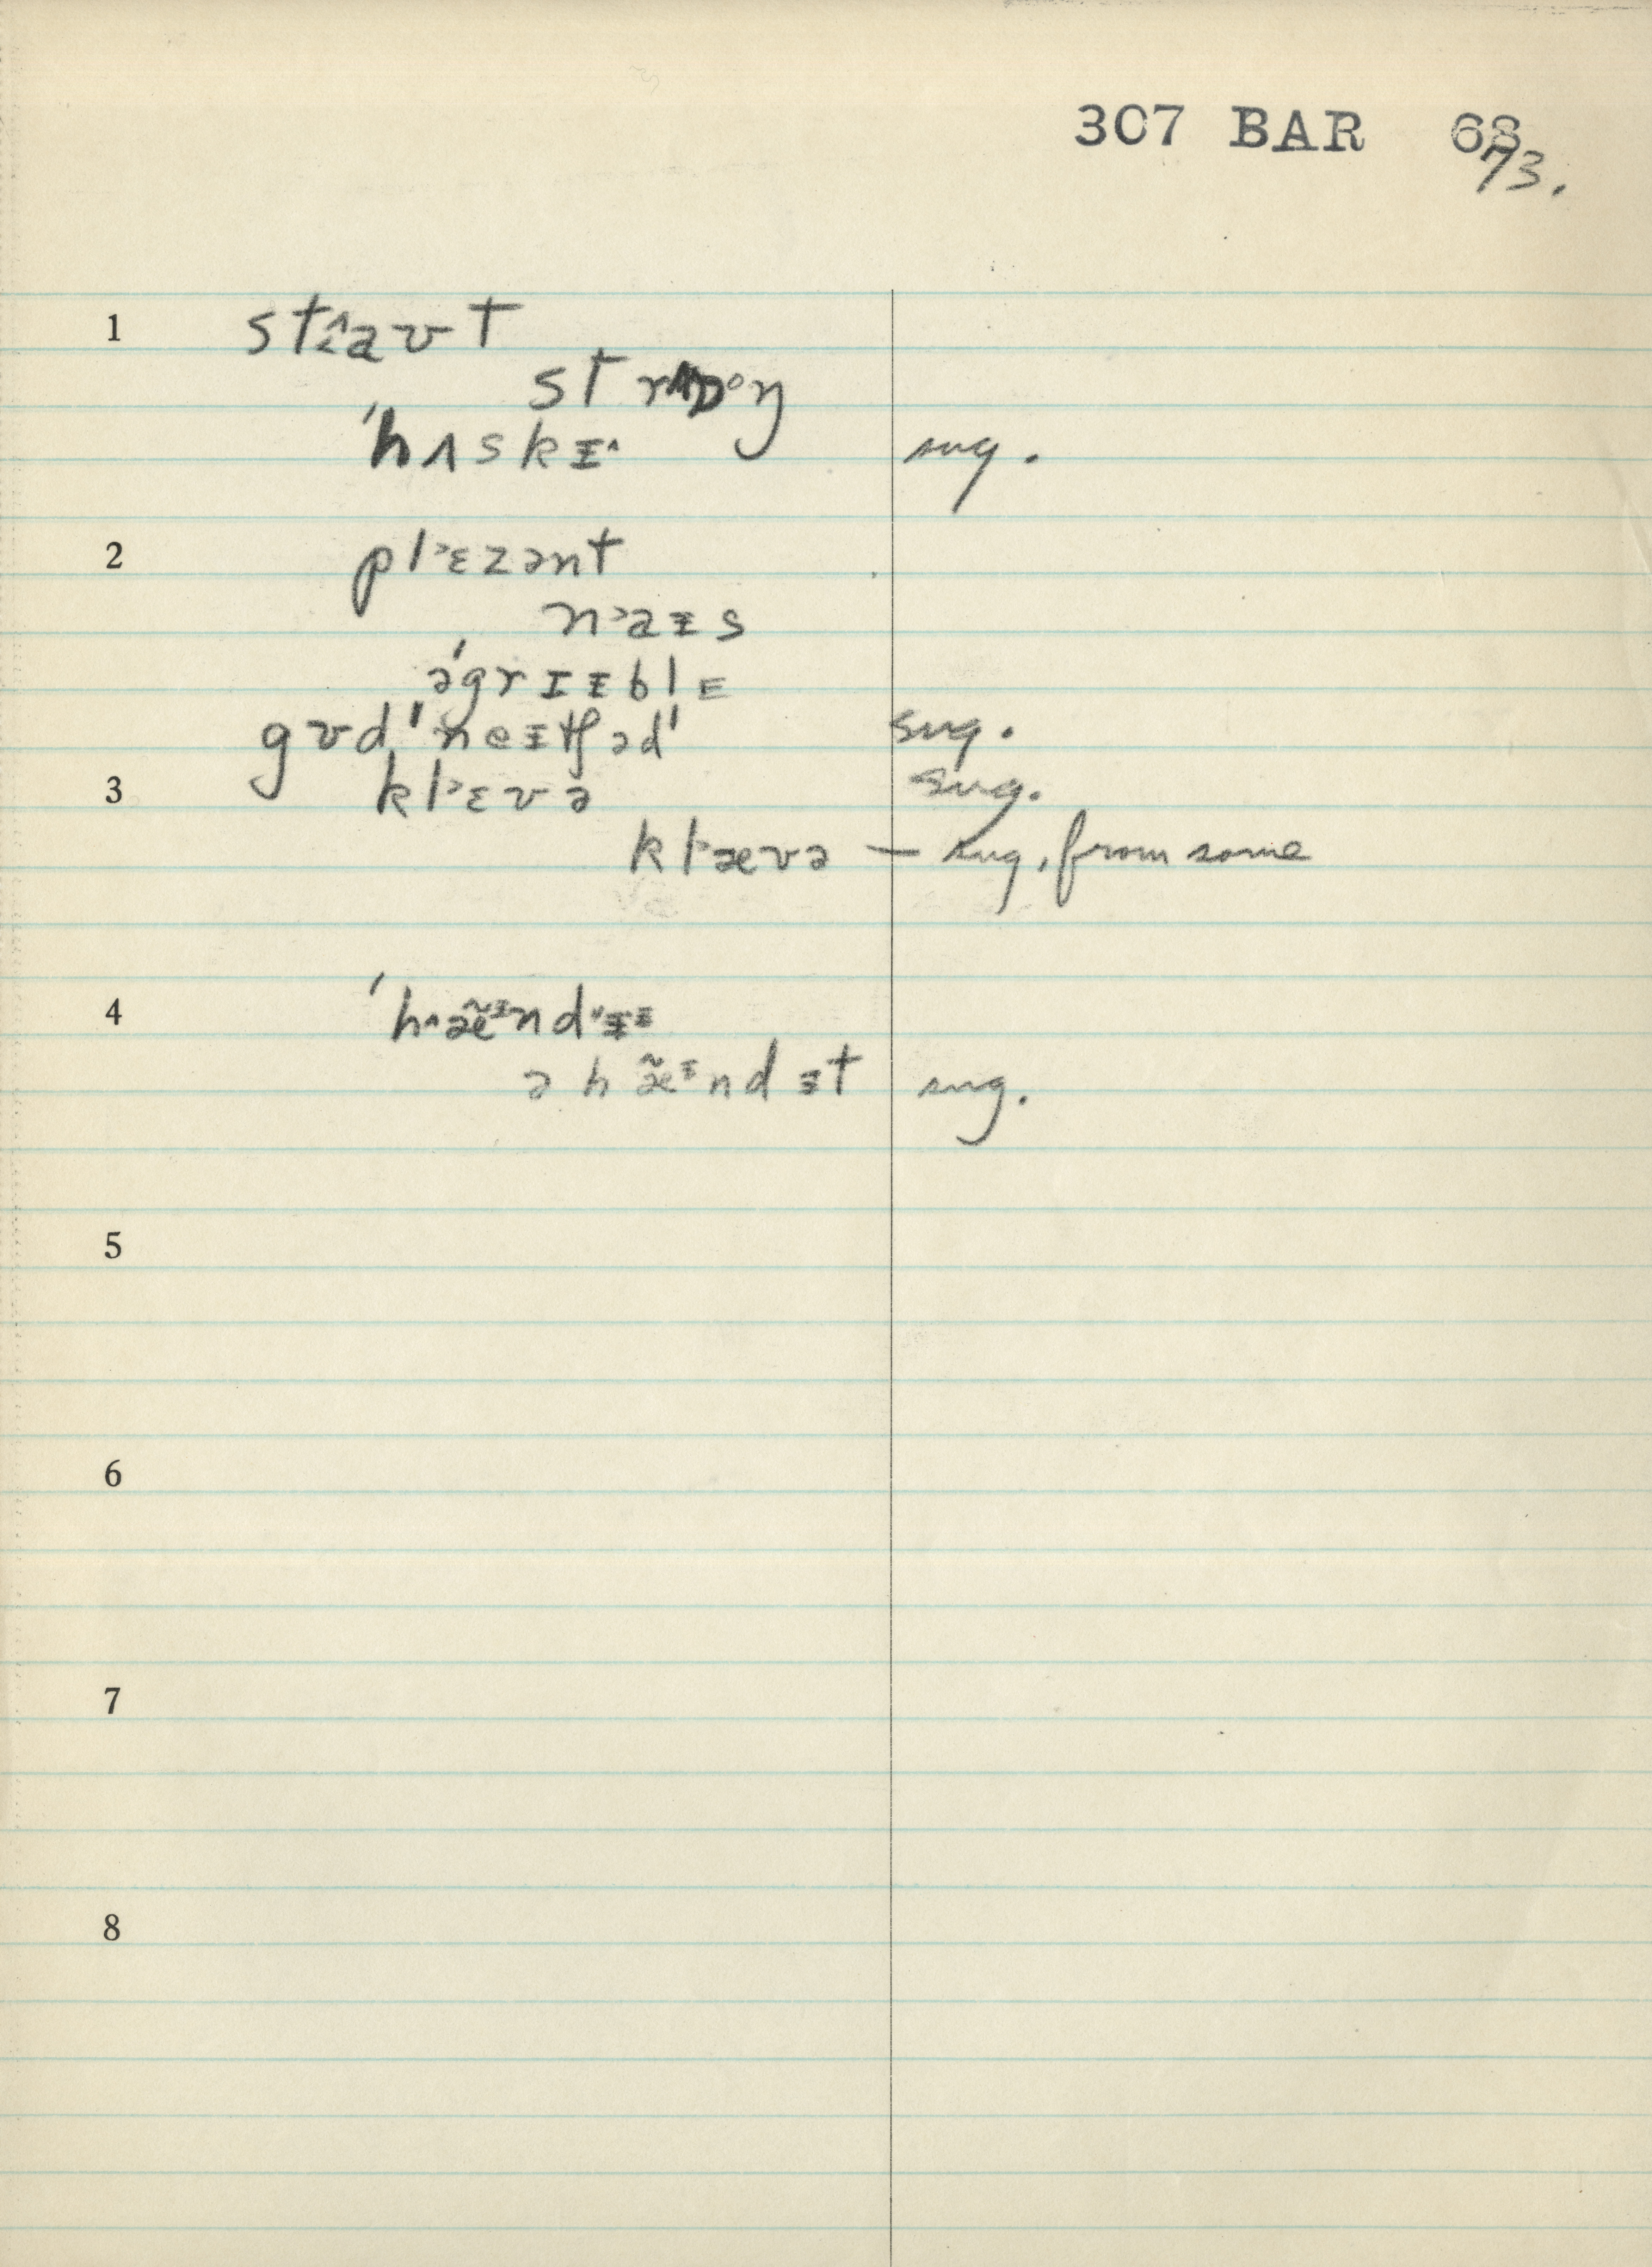 307 BAR 68
73.
1 st‸aʊt
strɒᵒŋ
ˈhʌskɪ^ sug.
2 pl˃ɛzənt
n˃aɪs
əˈgrɪɪblɛ
gʊdˈneɪtʃədˈ sug.
3 kl˃ɛvə sug.
kl˃ævə — sug. from some
4 ˈh^æ̃ᶦndˈɪɪ
ə hæ̃ᶦndɪt sug.
5
6
7
8